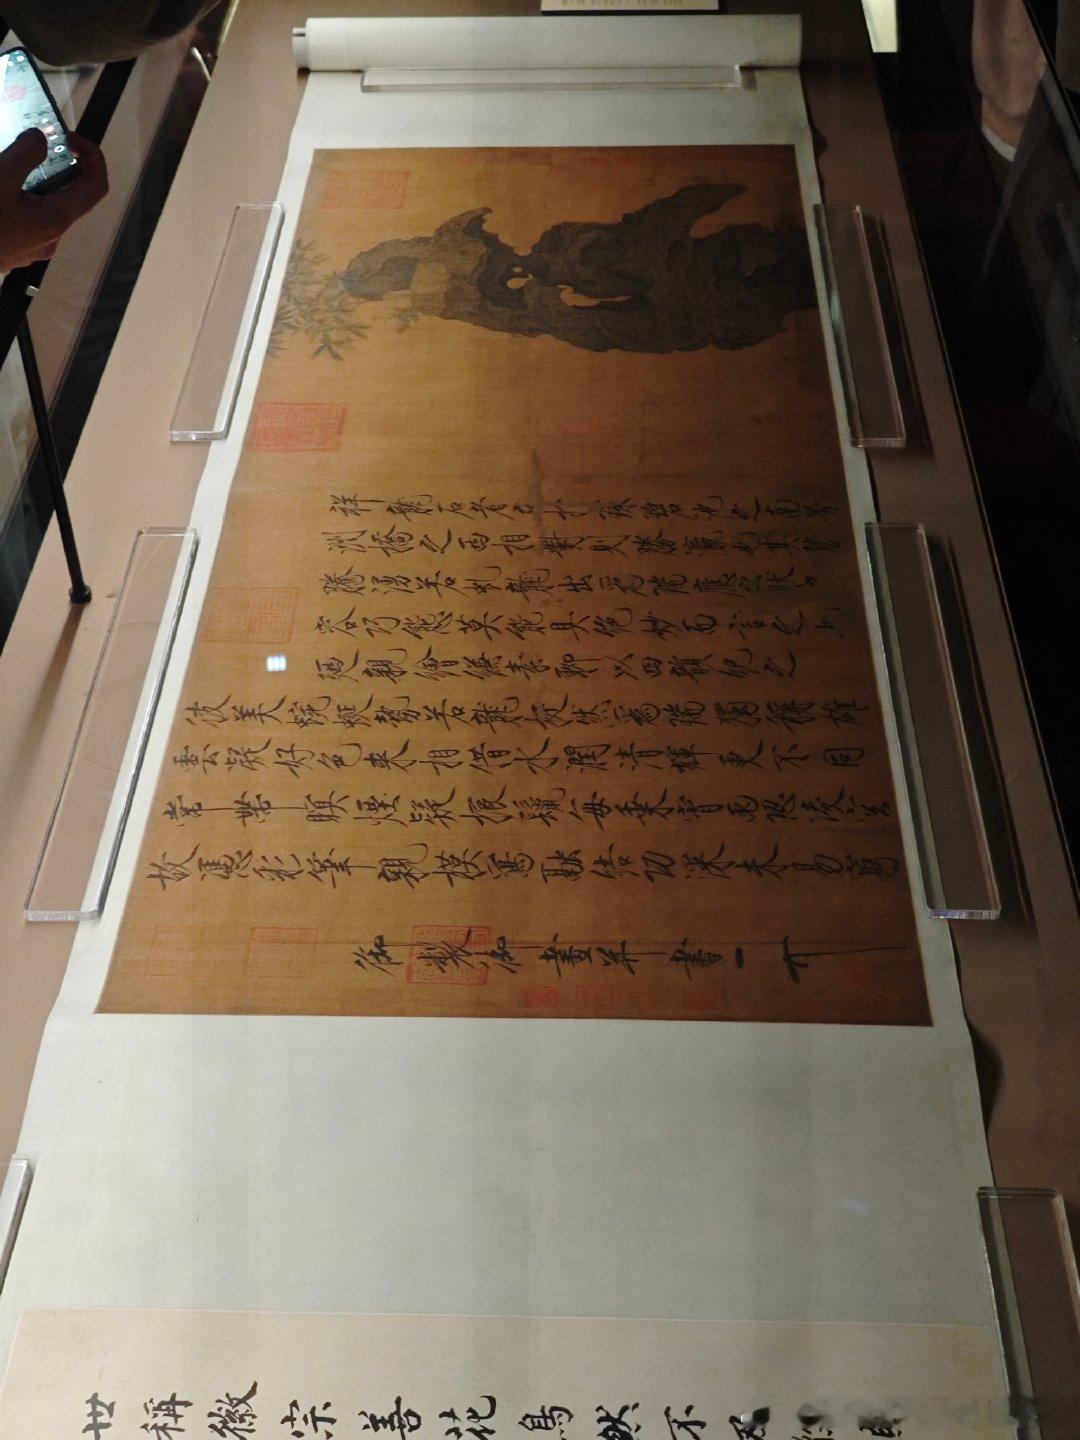 祥龍石者立於環碧池之南芳
洲橋之西相對則勝瀛也其勢
騰湧若虯龍出爲瑞應之狀奇
容巧態莫能具絕妙而言之也
廼親繪縑素聊以四韻紀之
彼美蜿蜒勢若龍挺然爲瑞獨稱雄
雲凝好色來相借水潤清輝更不同
常帶暝煙疑振鬣每乘宵雨恐凌空
故憑彩筆親模寫融結功深未易窮
御製御畫并書
世稱徽宗善花鳥然不